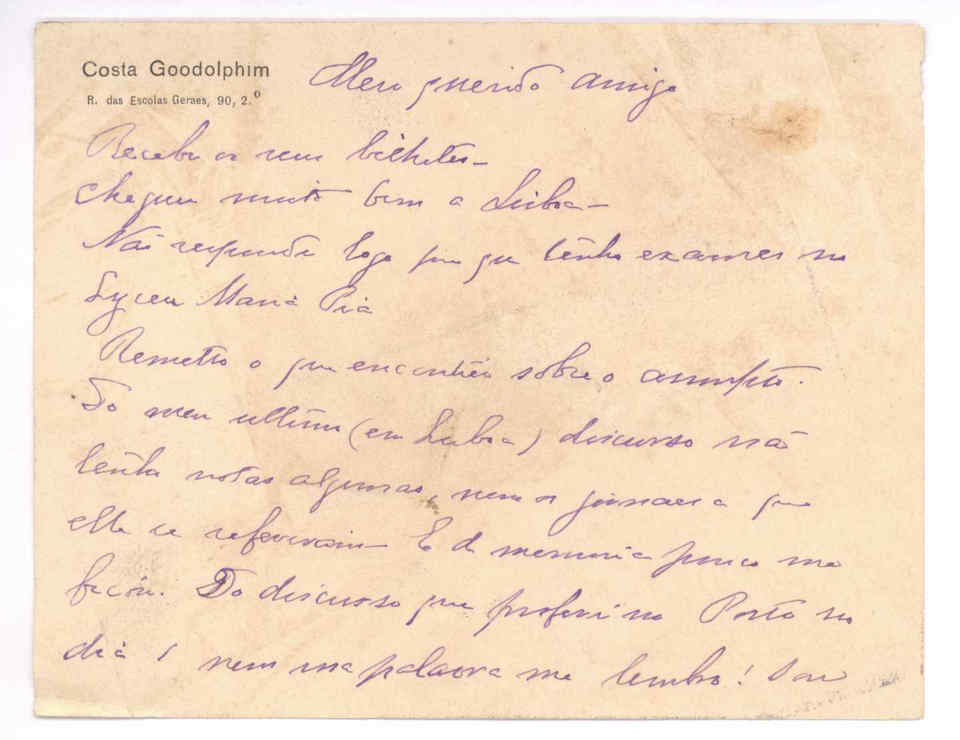 Costa Goodolphim
R. das Escolas Geraes, 90, 2.º
Meu querido amigo
Recebi os seus bilhetes –
Cheguei muito bem a Lisboa –
Não respondi logo por que tenho exames no
Lyceu Maria Pia
Remetto o que encontrei sobre o assumpto.
Do meu ultimo (em Lisboa) discurso não
tenho notas algumas, nem os jornaes a que
elle se referiram – E de memoria pouco me
ficou. Do discurso que proferi no Porto no
dia 1 nem uma palavra me lembro!